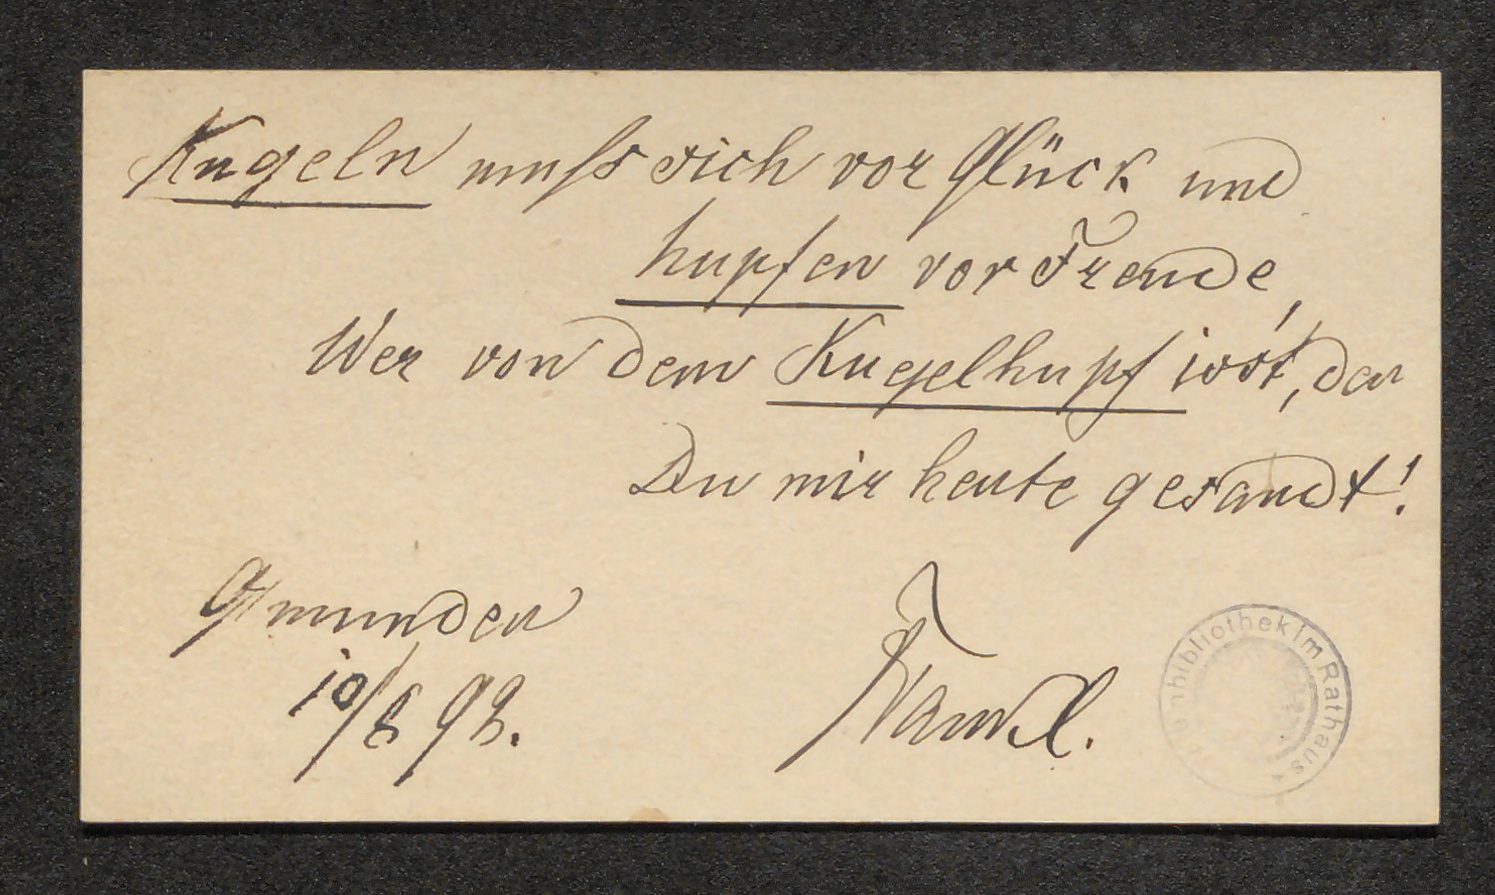 Kugeln muss sich vor Glück und
hupfen vor Freude,
Wer von dem Kugelhupf isst, den
Du mir heute gesandt!
Gmunden
10/8 98.
bibliothek im Rathaus